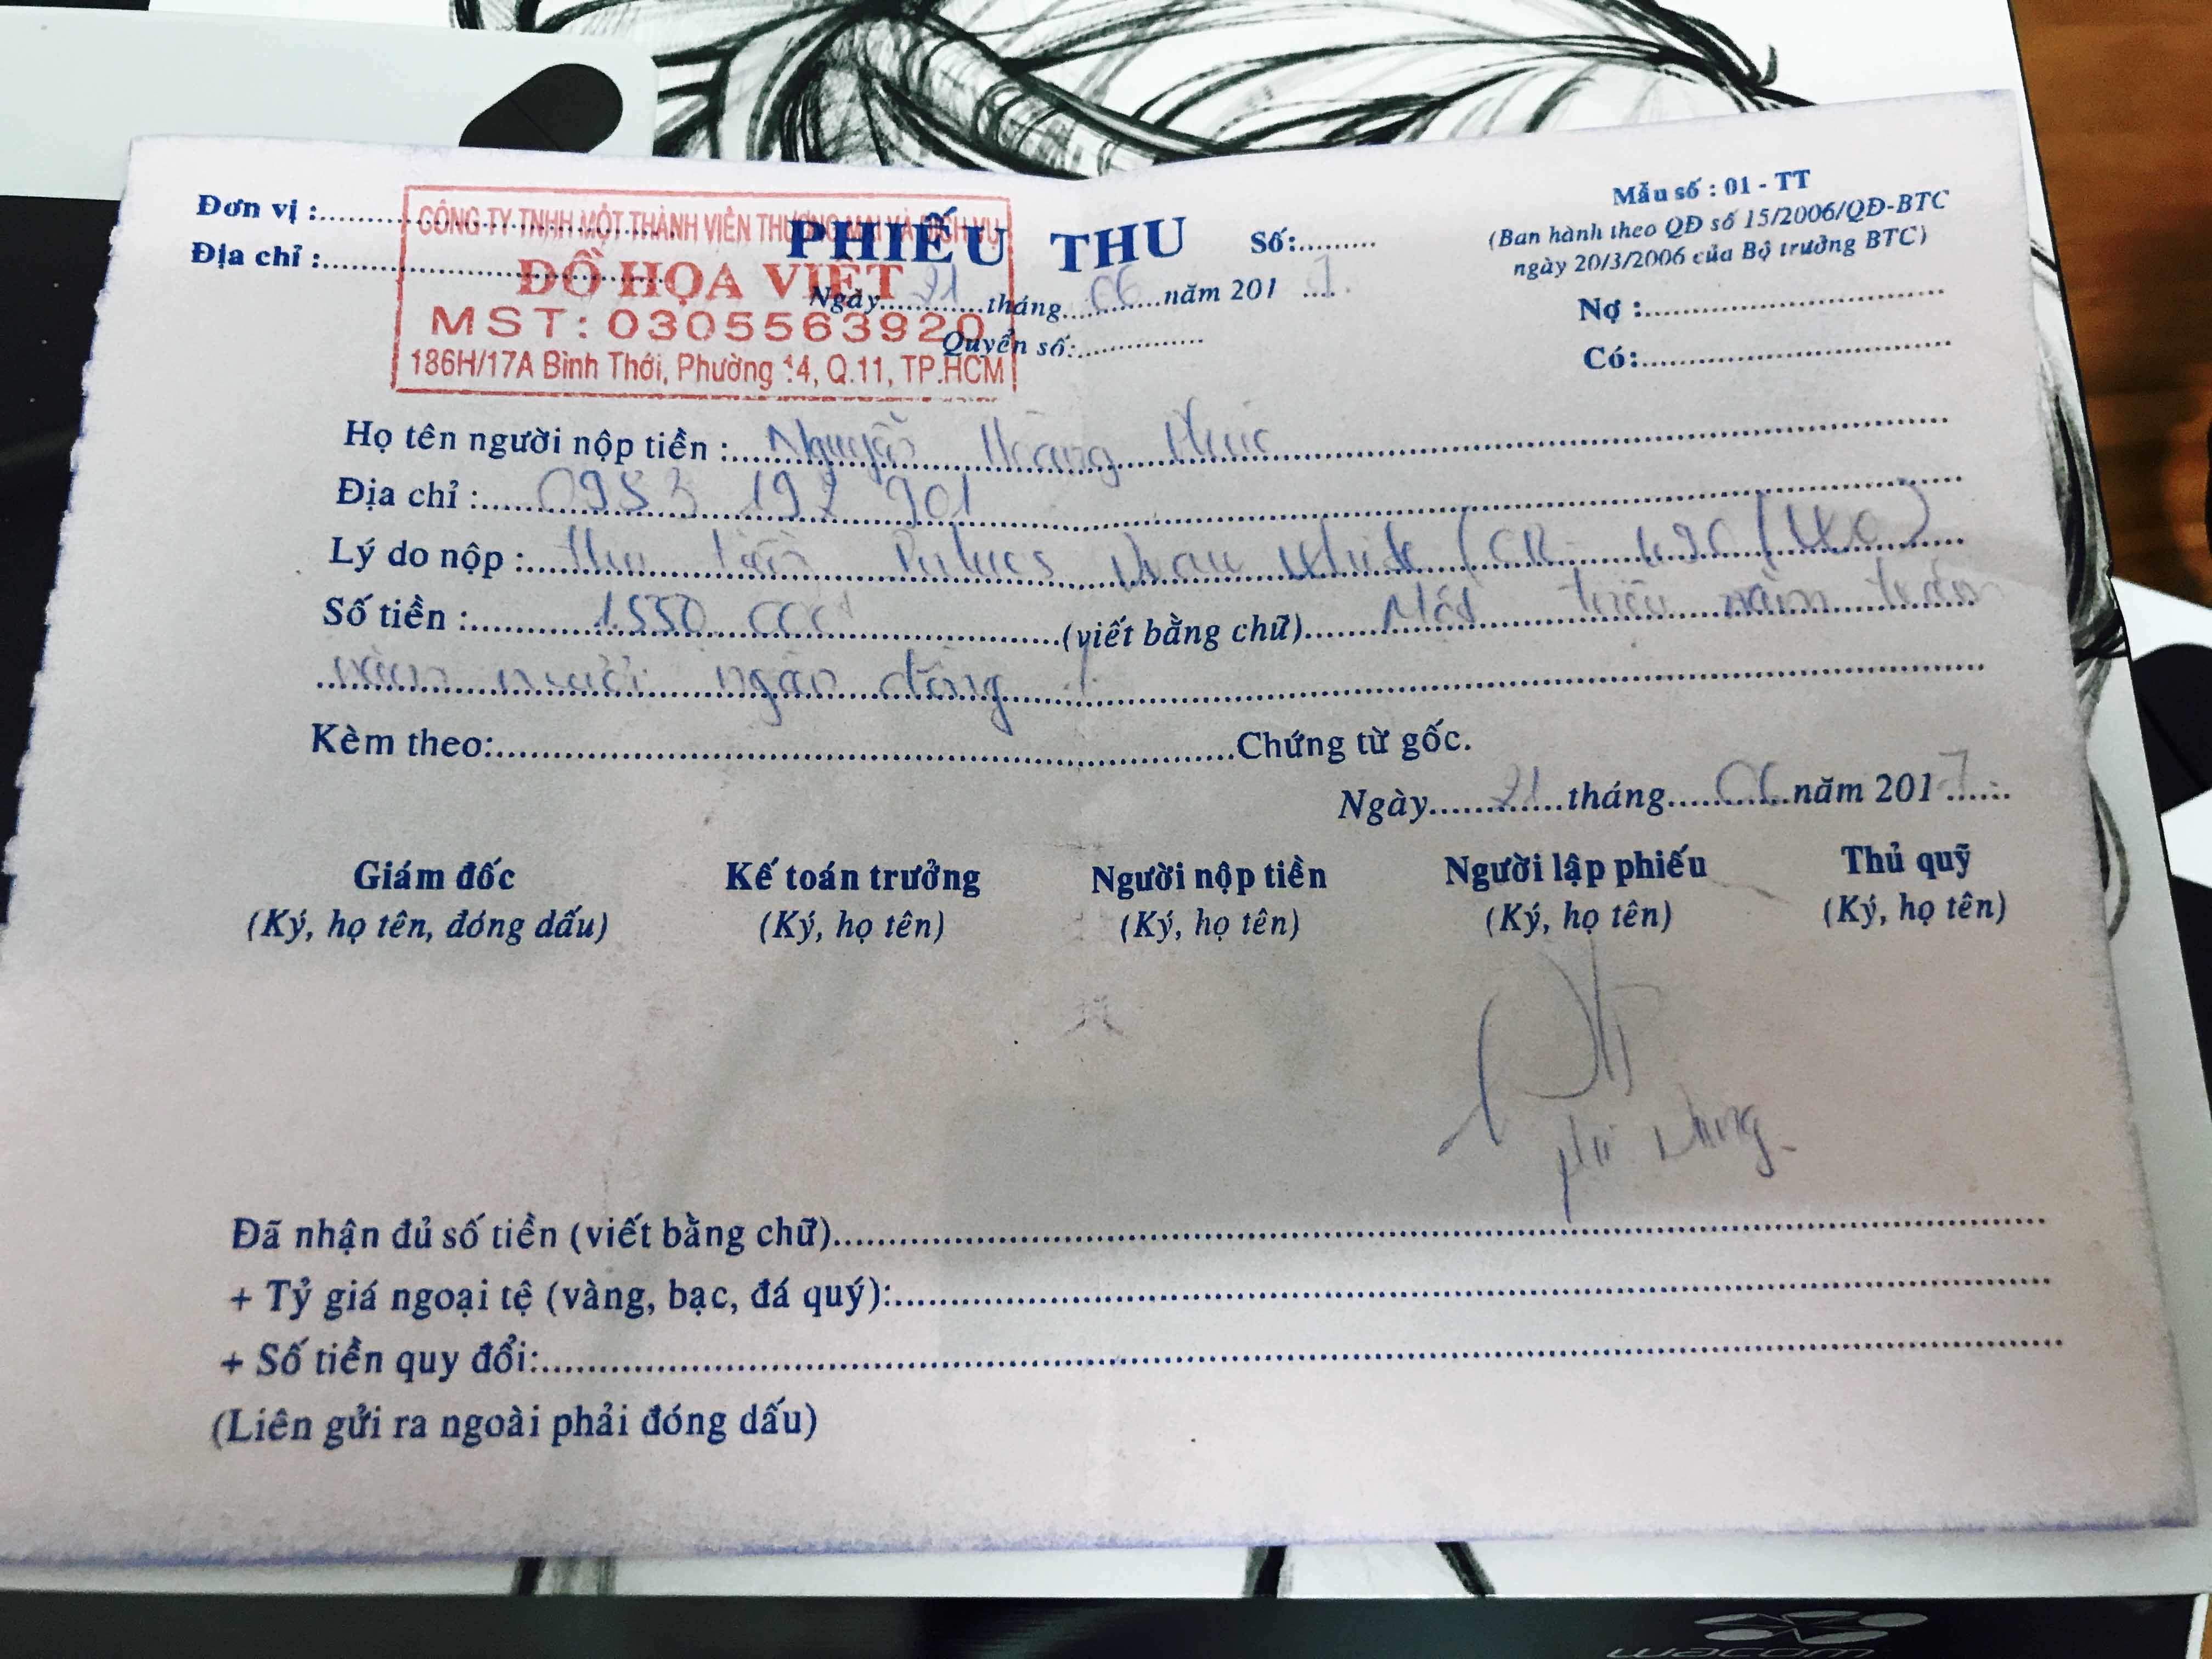 Đơn vị :
CÔNG TY TNHH MỘT THÀNH VIÊN THƯƠNG MẠI VÀ DỊCH VỤ
Địa chỉ :
ĐỒ HỌA VIỆT
MST: 0305563920
186H/17A Bình Thới, Phường 14, Q.11, TP.HCM
PHIẾU THU
Số:
Ngày 21 tháng 06 năm 2017
Quyển số:
Mẫu số : 01 - TT
(Ban hành theo QĐ số 15/2006/QĐ-BTC
ngày 20/3/2006 của Bộ trưởng BTC)
Nợ :
Có:
Họ tên người nộp tiền : Nguyễn Hoàng Phúc
Địa chỉ : 0953 197 901
Lý do nộp : thu tiền
Số tiền : 1.550.000đ (viết bằng chữ) Một triệu năm trăm
năm mươi ngàn đồng
Kèm theo: Chứng từ gốc.
Ngày 21 tháng 06 năm 2017
Giám đốc Kế toán trưởng Người nộp tiền Người lập phiếu Thủ quỹ
(Ký, họ tên, đóng dấu) (Ký, họ tên) (Ký, họ tên) (Ký, họ tên) (Ký, họ tên)
Đã nhận đủ số tiền (viết bằng chữ)
+ Tỷ giá ngoại tệ (vàng, bạc, đá quý):
+ Số tiền quy đổi:
(Liên gửi ra ngoài phải đóng dấu)
wacom